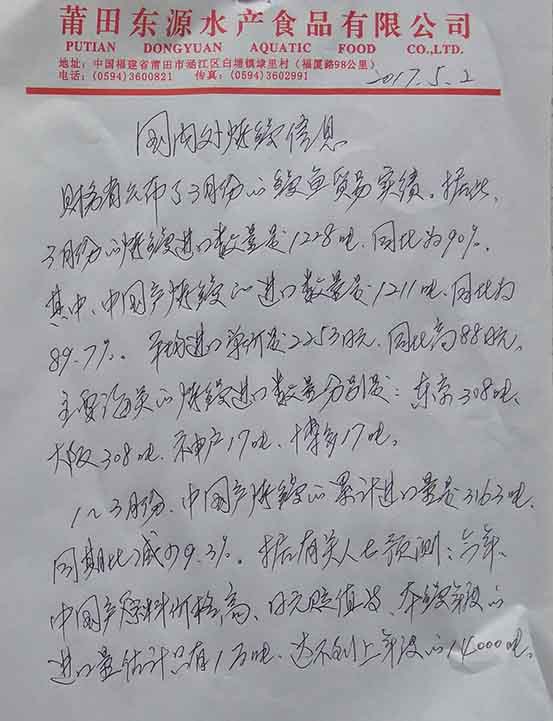 莆田东源水产食品有限公司
PUTIAN DONGYUAN AQUATIC FOOD CO.,LTD.
地址：中国福建省莆田市涵江区白塘镇埭里村（福厦路98公里）
电话：(0594)3600821 传真：(0594)3602991
2017.5.2
国内外烤鳗信息
财务省公布了3月份的鳗鱼贸易实绩。据此，
3月份的烤鳗进口数量是1228吨、同比为90%。
其中、中国产烤鳗的进口数量是1211吨、同比为
89.7%。平均进口单价是2253日元、同比高88日元。
主要海关的烤鳗进口数量分别是：东京308吨、
大阪308吨、神户17吨、博多17吨。
1～3月份、中国产烤鳗的累计进口量是3163吨、
同期比减少9.3%。据有关人士预测：今年、
中国产原料价格高、日元贬值、本鳗年度的
进口量估计只有1万吨、达不到上年度的14000吨。